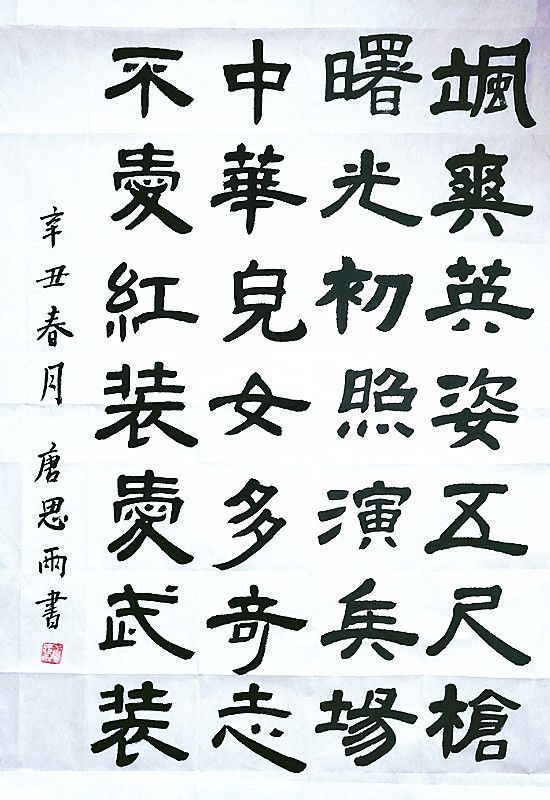 颯爽英姿五尺槍
曙光初照演兵場
中華兒女多奇志
不愛紅装愛武装
辛丑春月 唐思雨書